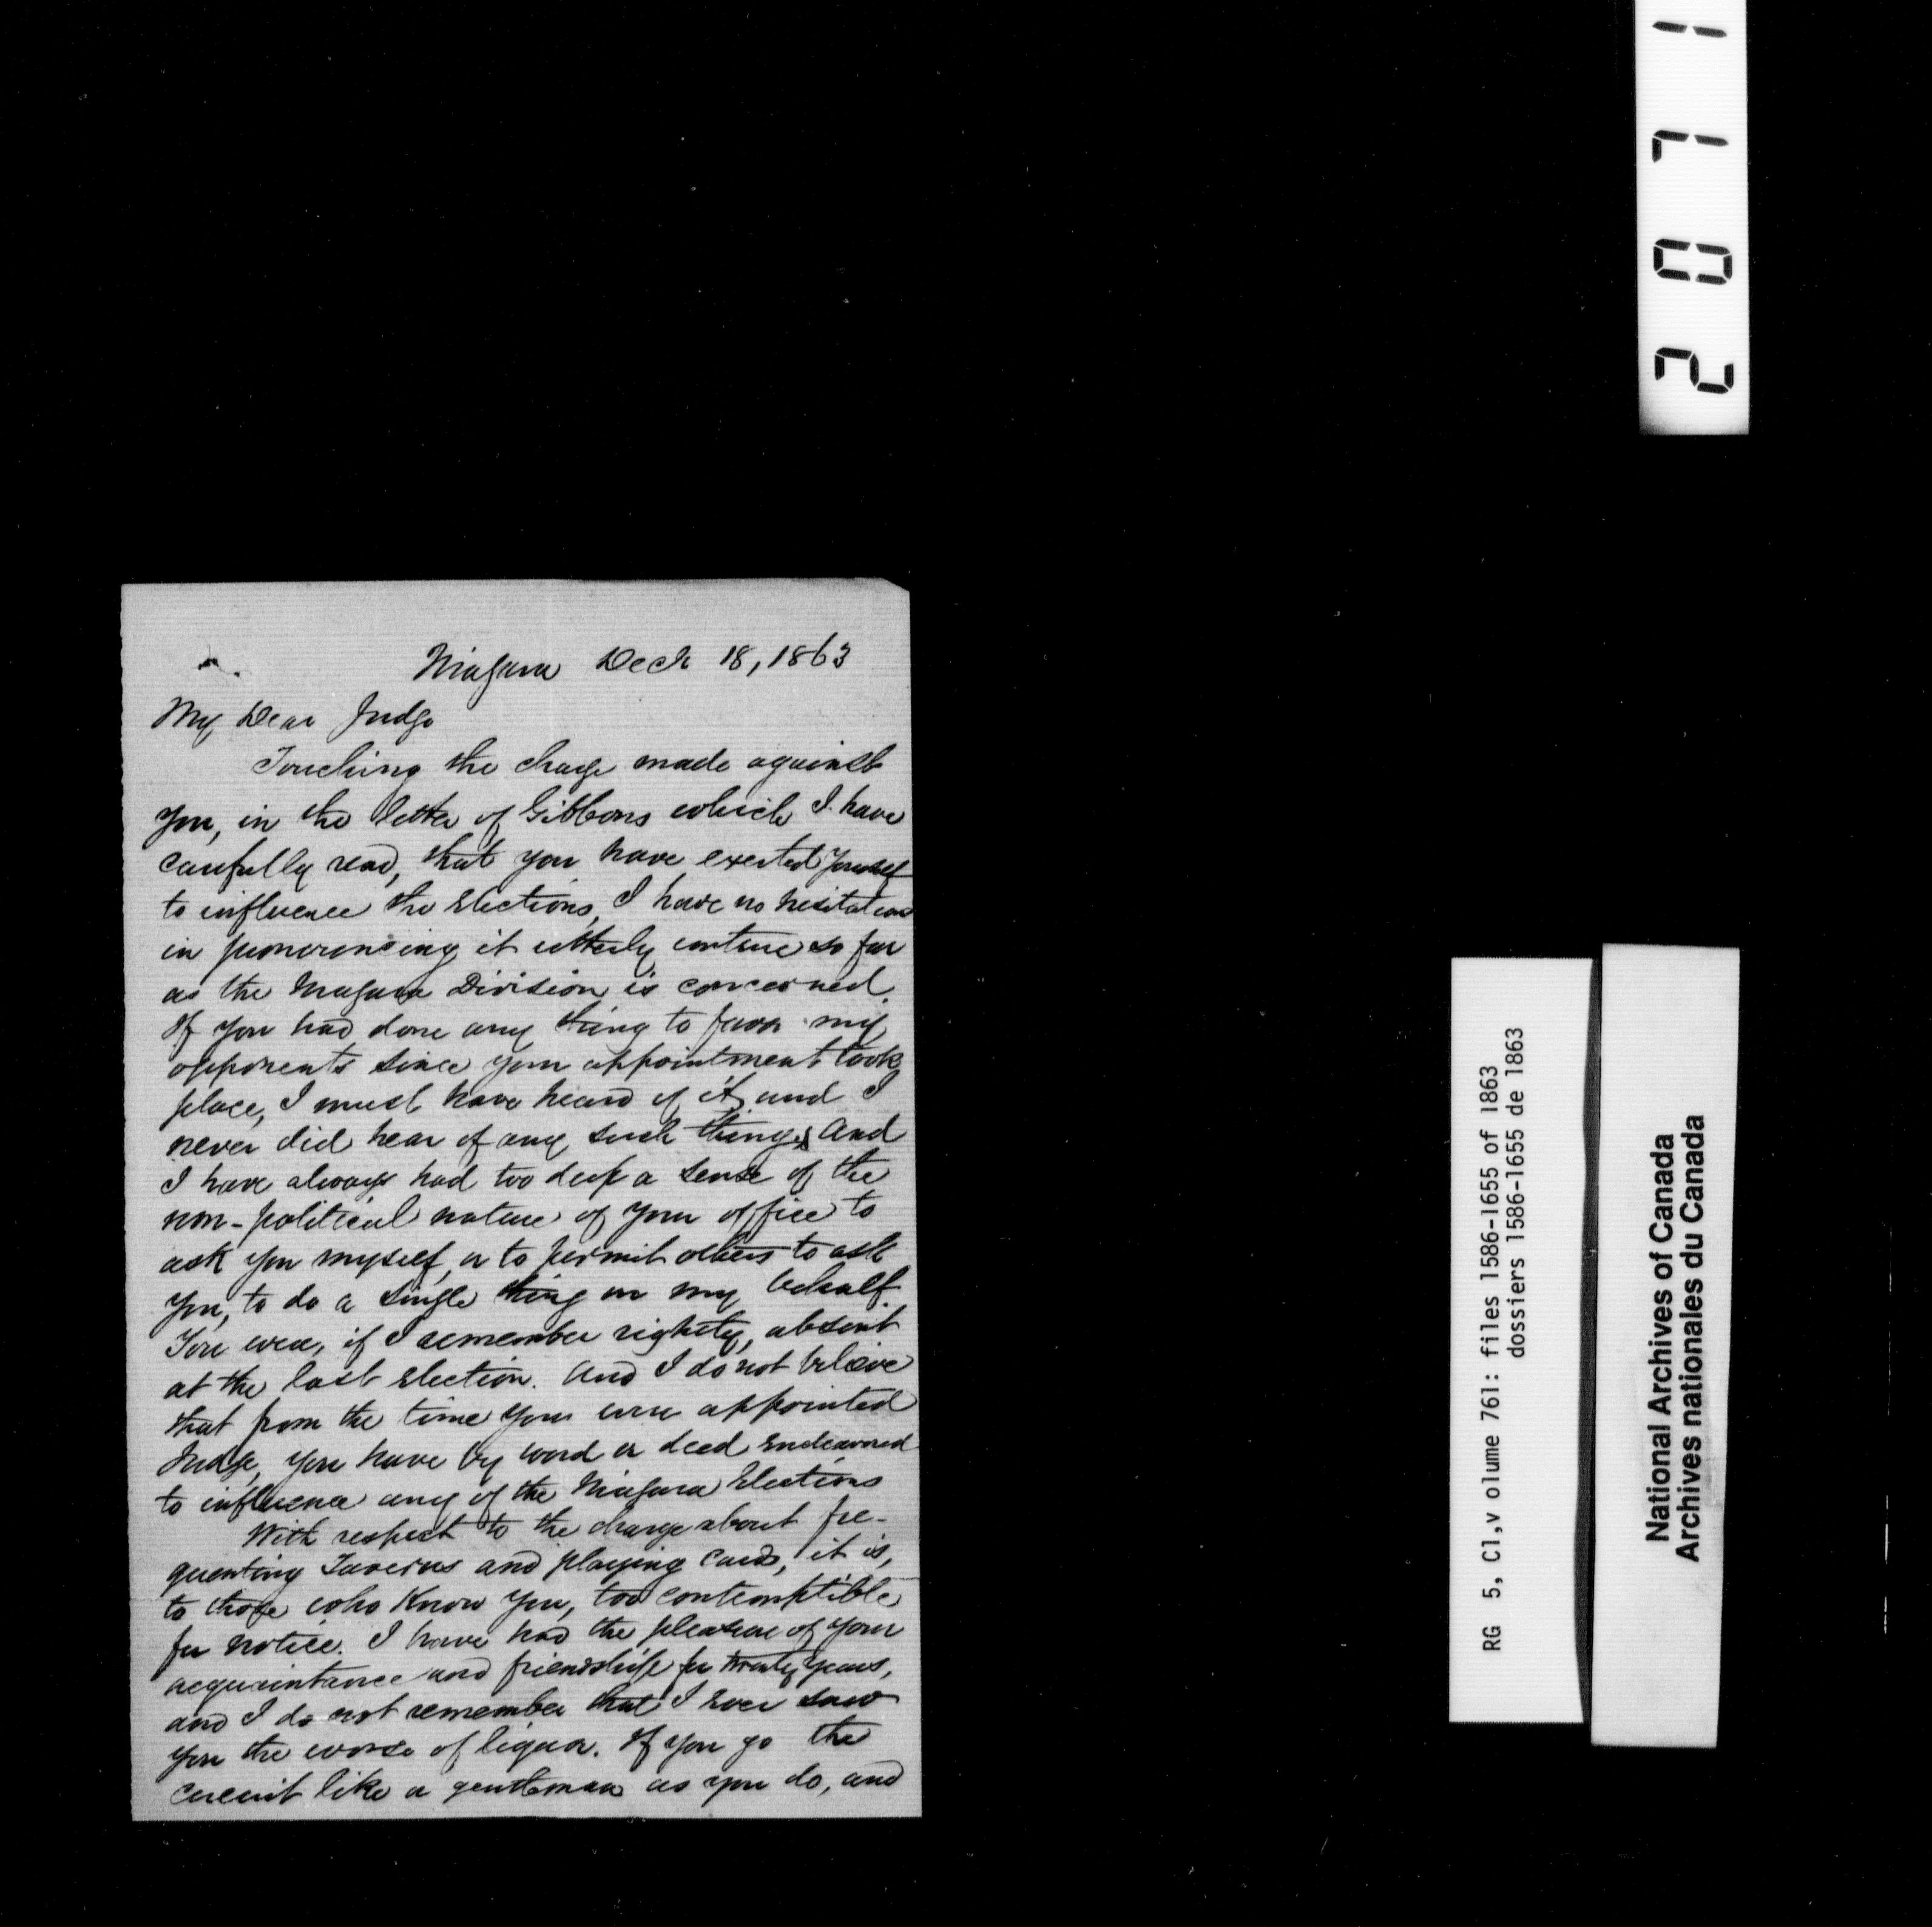 Niagara Decr 18, 1863
My Dear Judge
Touching the charge made against
you, in the letter of Gibbons which I have
carefully read, that you have exerted yourself
to influence the Elections, I have no hesitation
in pronouncing it utterly untrue so far
as the Niagara Division is concerned.
If you had done any thing to favor my
opponents since your appointment took
place, I must have heard of it, and I
never did hear of any such thing, and
I have always had too deep a sense of the
non-political nature of your office to
ask you myself, or to permit others to ask
you, to do a single thing on my behalf.
You were, if I remember rightly, absent
at the last Election. And I do not believe
that from the time you were appointed
Judge, you have by word or deed Endeavored
to influence any of the Niagara Elections
With respect to the charge about fre-
quenting Taverns and playing cards, it is,
to those who Know you, too contemptible
for notice. I have had the pleasure of your
acquaintance and friendship for twenty years,
and I do not remember that I Ever saw
you the worse of liquor. If you go the
circuit like a gentleman as you do, and
2071
RG 5, C1,v olume 761: files 1586-1655 of 1863
dossiers 1586-1655 de 1863
National Archives of Canada
Archives nationales du Canada